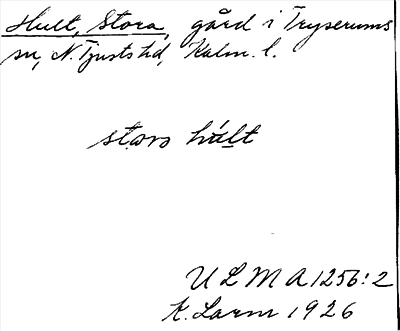 Hult, Stora, gård i Tryserums
sn, N. Tjusts hd, Kalm. l.
stora húlt
ULMA 1256:2
K. Larm 1926